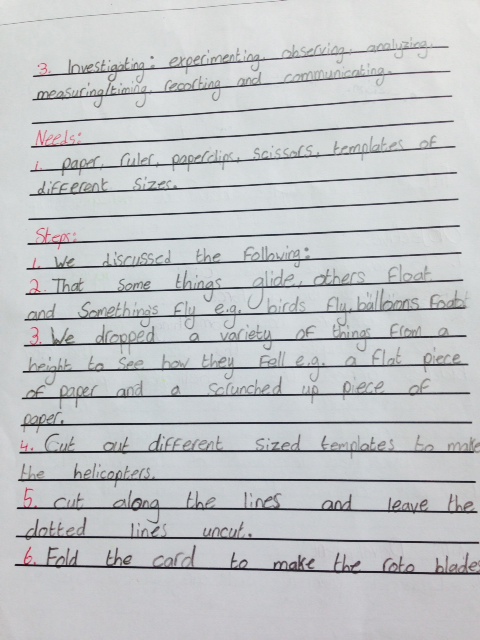 3. Investigating: experimenting, observing, analyzing,
measuring/timing, recorting and communicating.
Needs:
1. paper, ruler, paperclips, scissors, templates of
different sizes.
Steps:
1. We discussed the Follwing:
2. That some things glide, others float
and somethings fly e.g. birds fly, balloons
3. We dropped a variety of things from a
height to see how they fell e.g. a flat piece
of paper and a scrunched up piece of
paper.
4. Cut out different sized templates to make
the helicopters.
5. cut along the lines and leave the
dotted lines uncut.
6. Fold the card to make the roto blades